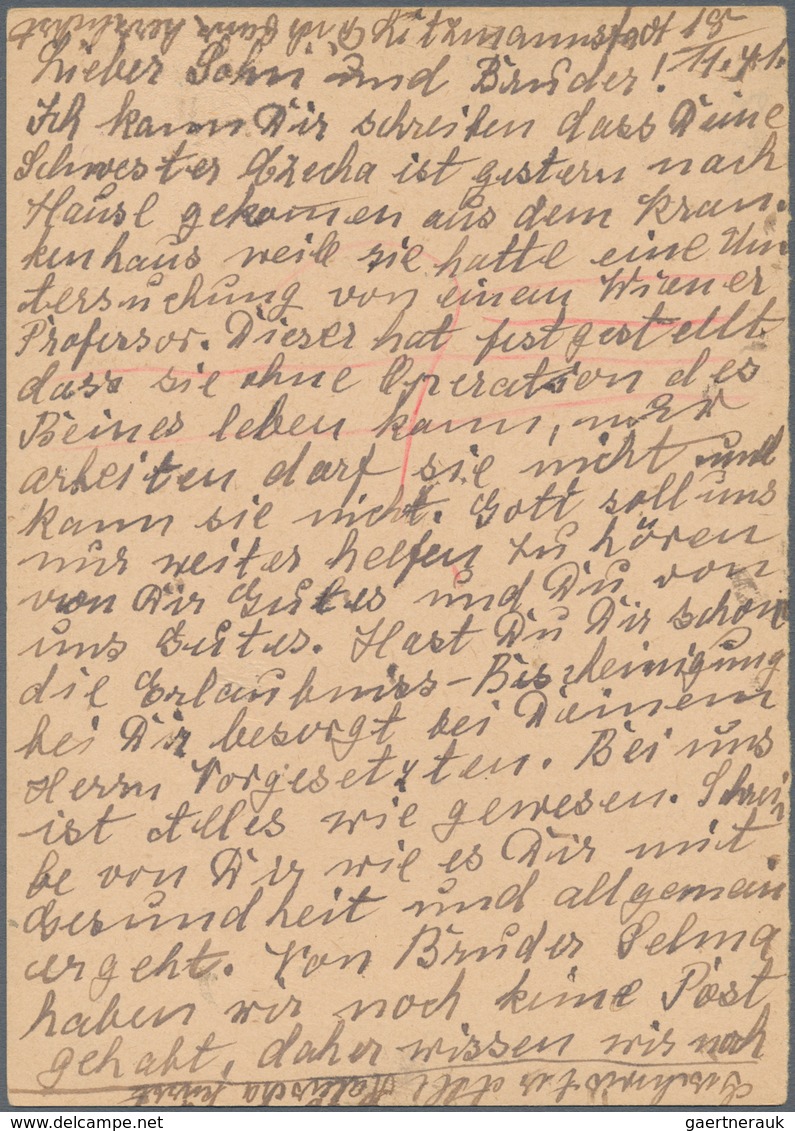 Litzmannstadt 18
Lieber Sohn und Bruder! 11.41.
Ich kann Dir schreiben dass Deine
Schwester Czecha ist gestern nach
Hause gekomen aus dem Kran-
kenhaus weil sie hatte eine Un
tersuchung von einem Wiener
Professor. Dieser hat festgestellt
dass sie ohne Operation des
Beines leben kann, nur
arbeiten darf sie nicht und
kann sie nicht. Gott soll uns
nur weiter helfen zu hören
von Dir Gutes und Du von
uns Gutes. Hast Du Dir schon
die Erlaubniss-Bischeinigung
bei Dir besorgt bei Deinem
Herrn Vorgesetzten. Bei uns
ist Alles wie gewesen. Schrei
be von Dir wie es Dir mit
Gesundheit und allgemein
ergeht. Von Bruder Selma
haben wir noch keine Post
gehabt, daher wissen wir noch
gaertnerauk